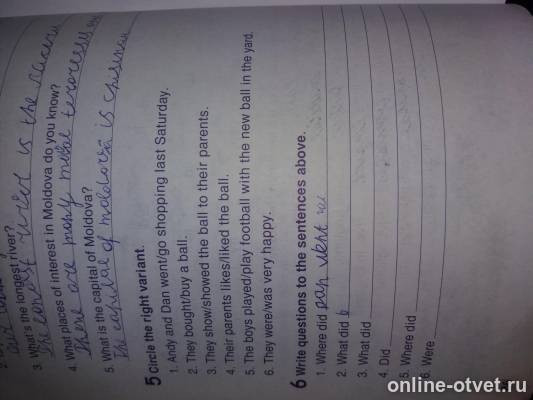 3. What's the longest river?
The longest river is the
4. What places of interest in Moldova do you know?
There are many
5. What is the capital of Moldova?
The capital of moldova is chisinau
5 Circle the right variant.
1. Andy and Dan went/go shopping last Saturday.
2. They bought/buy a ball.
3. They show/showed the ball to their parents.
4. Their parents likes/liked the ball.
5. The boys played/play football with the new ball in the yard.
6. They were/was very happy.
6 Write questions to the sentences above.
1. Where did
2. What did b
3. What did
4. Did
5. Where did
6. Were
online-otvet.ru